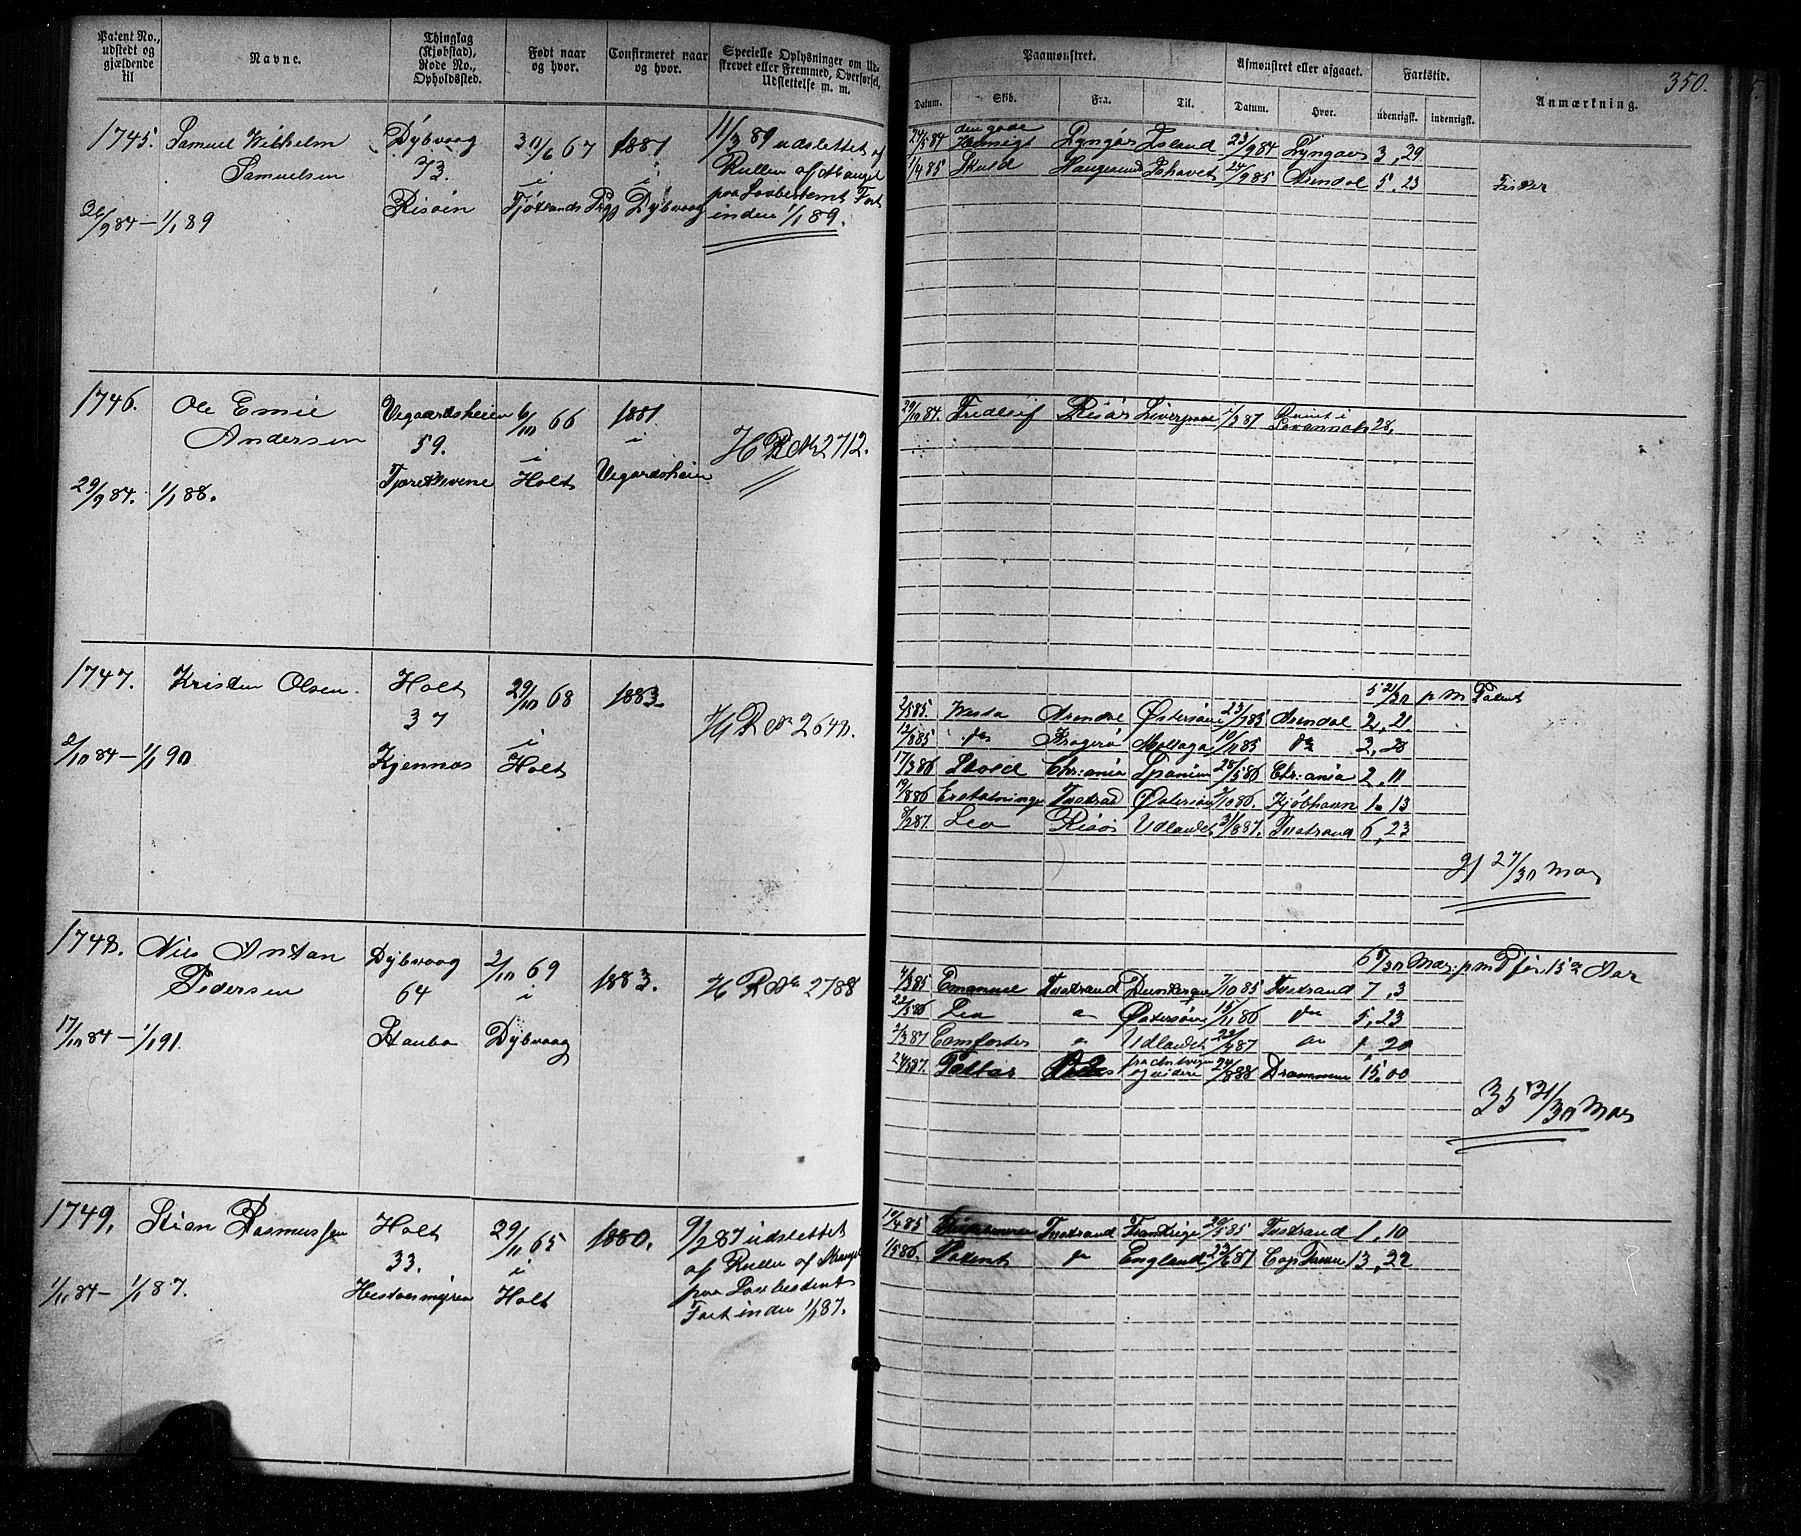 Patent No., udstedt og gjældende til
Navne.
Thinglag (Kjøbstad), Rode No., Opholdssted.
Født naar og hvor.
Confirmeret naar og hvor.
Specielle Oplysninger om Udskrevet eller Fremmed, Overførsel, Udslettelse m. m.
Paamønstret.
Afmønstret eller afgaaet.
Fartstid.
350.
Datum.
Skib.
Fra.
Til.
Datum.
Hvor.
udenrigsk.
indenrigsk.
Anmærkning.
1745. Samuel Wilhelm Samuelsen
26/9 84 — 1/1 89
Dybvaag
73.
Risøen
30/6 67
i
Fjotlands Prgj
1881
i
Dybvaag
11/3 89 udslettet af
Rullen af Mangel
paa Lovbestemt Fart
inden 1/1 89.
24/5 84 den gode Hensigt Lyngør Island 23/9 84 Lyngør 3, 29
1/4 85 Skuld Haugesund Ishavet 24/9 85 Arendal 5, 23
1746. Ole Emil Andersen
29/9 84. 1/1 88.
Vegaardsheien
59.
6/10 66
i
Holt
1881.
i
Vegardsheien
H R No 2712.
29/10 84. Fridleif Risør Liverpool 87 Rømt i Savannah 28,
1747. Kristen Olsen.
2/10 84 — 1/1 90
Holt
37
Kjennaas
29/10 68
i
Holt
1883.
H R No 2640.
5 21/30 p m Patent
2/5 85. Vesta Arendal Østersøen 23/7 85 Arendal 2, 21
12/8 85 do Kragerø Mallaga 10/11 85 do 2, 28
17/3 86 Skold Chr:ania Spanien 28/5 86 Chr:ania 2, 11
19/8 86 Erstatningen Tvestrad Østersøen 2/10 86. Kjøbhavn 1, 13
8/2 87. Leo Risør Udlandet 31/8 87. Tvestrand 6, 23
21 27/30 Mdr
1748. Nils Anton Pedersen
17/10 84 — 1/1 91.
Dybvaag
64
Staubø
2/10 69
i
Dybvaag
1883.
H R No 2788
4/3 85 Emanuel Tvestrand Dunkerque 7/10 85 Tvestrand 7, 3
22/5 86 Leo " Østersøen 15/11 86 do 5, 23
2/3 87 Comforter " Udlandet 22/4 87 do 1 20
24/5 87. fra Antverpen og videre 24/8 88 Drammen 15, 00
35 21/30 Mdr
1749. Stian Rasmussen
1/11 84 — 1/1 87.
Holt
33.
Hestaasmyren
29/11 65
i
Holt
1880.
9/2 87 udslettet
af Rullen af Mangel
paa Lovbestemt
Fart inden 1/1 87.
10/4 85 Tvestrand Frankrige 20/5 85 Tvestrand 1, 10
1/5 86. Patent do England 23/6 87 13, 22